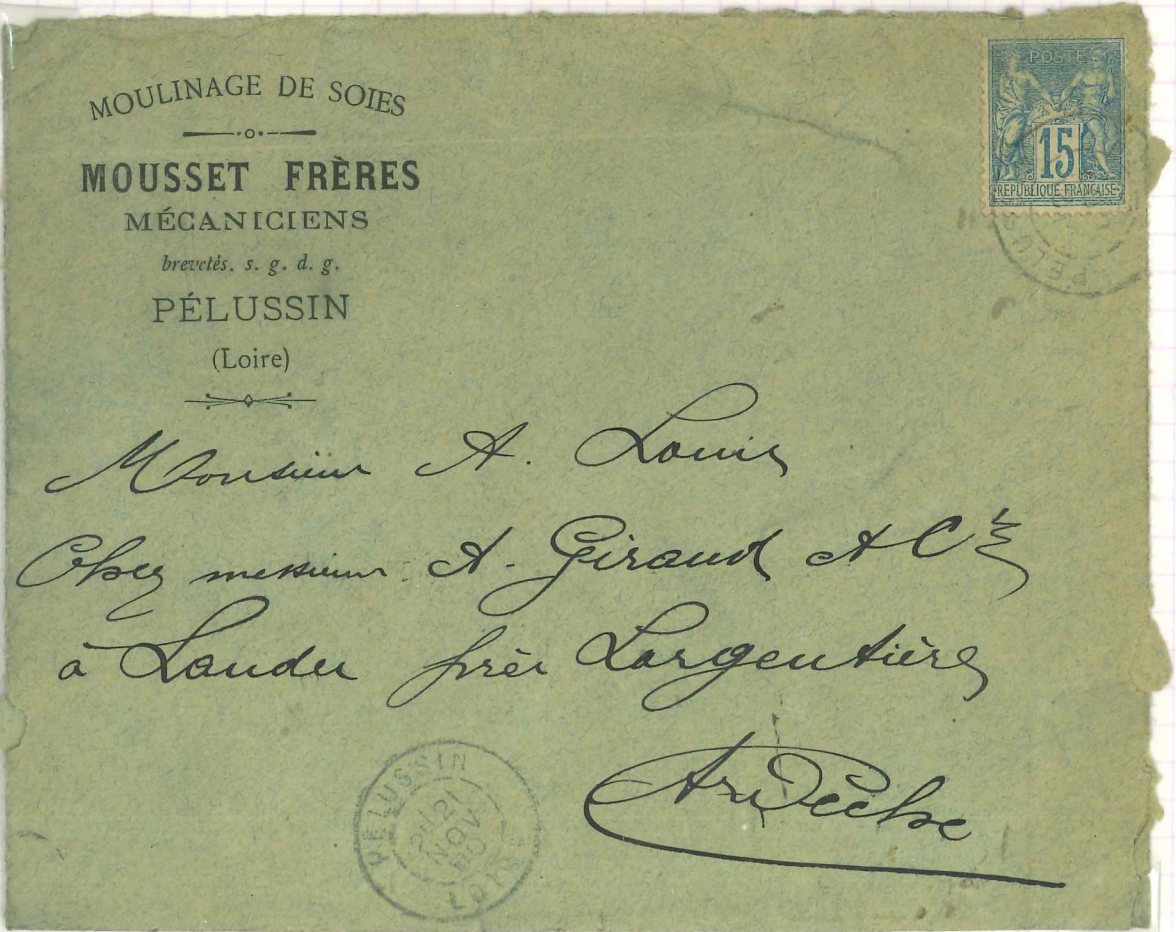 MOULINAGE DE SOIES
MOUSSET FRÈRES
MÉCANICIENS
brevetés. s. g. d. g.
PÉLUSSIN
(Loire)
POSTES
15
REPUBLIQUE FRANÇAISE
PELUSSIN
Monsieur A. Louis
Chez messieurs A. Giraud & Cie
à Laudes près Largentière
Ardèche
PELUSSIN
21
NOV
90
LOIRE